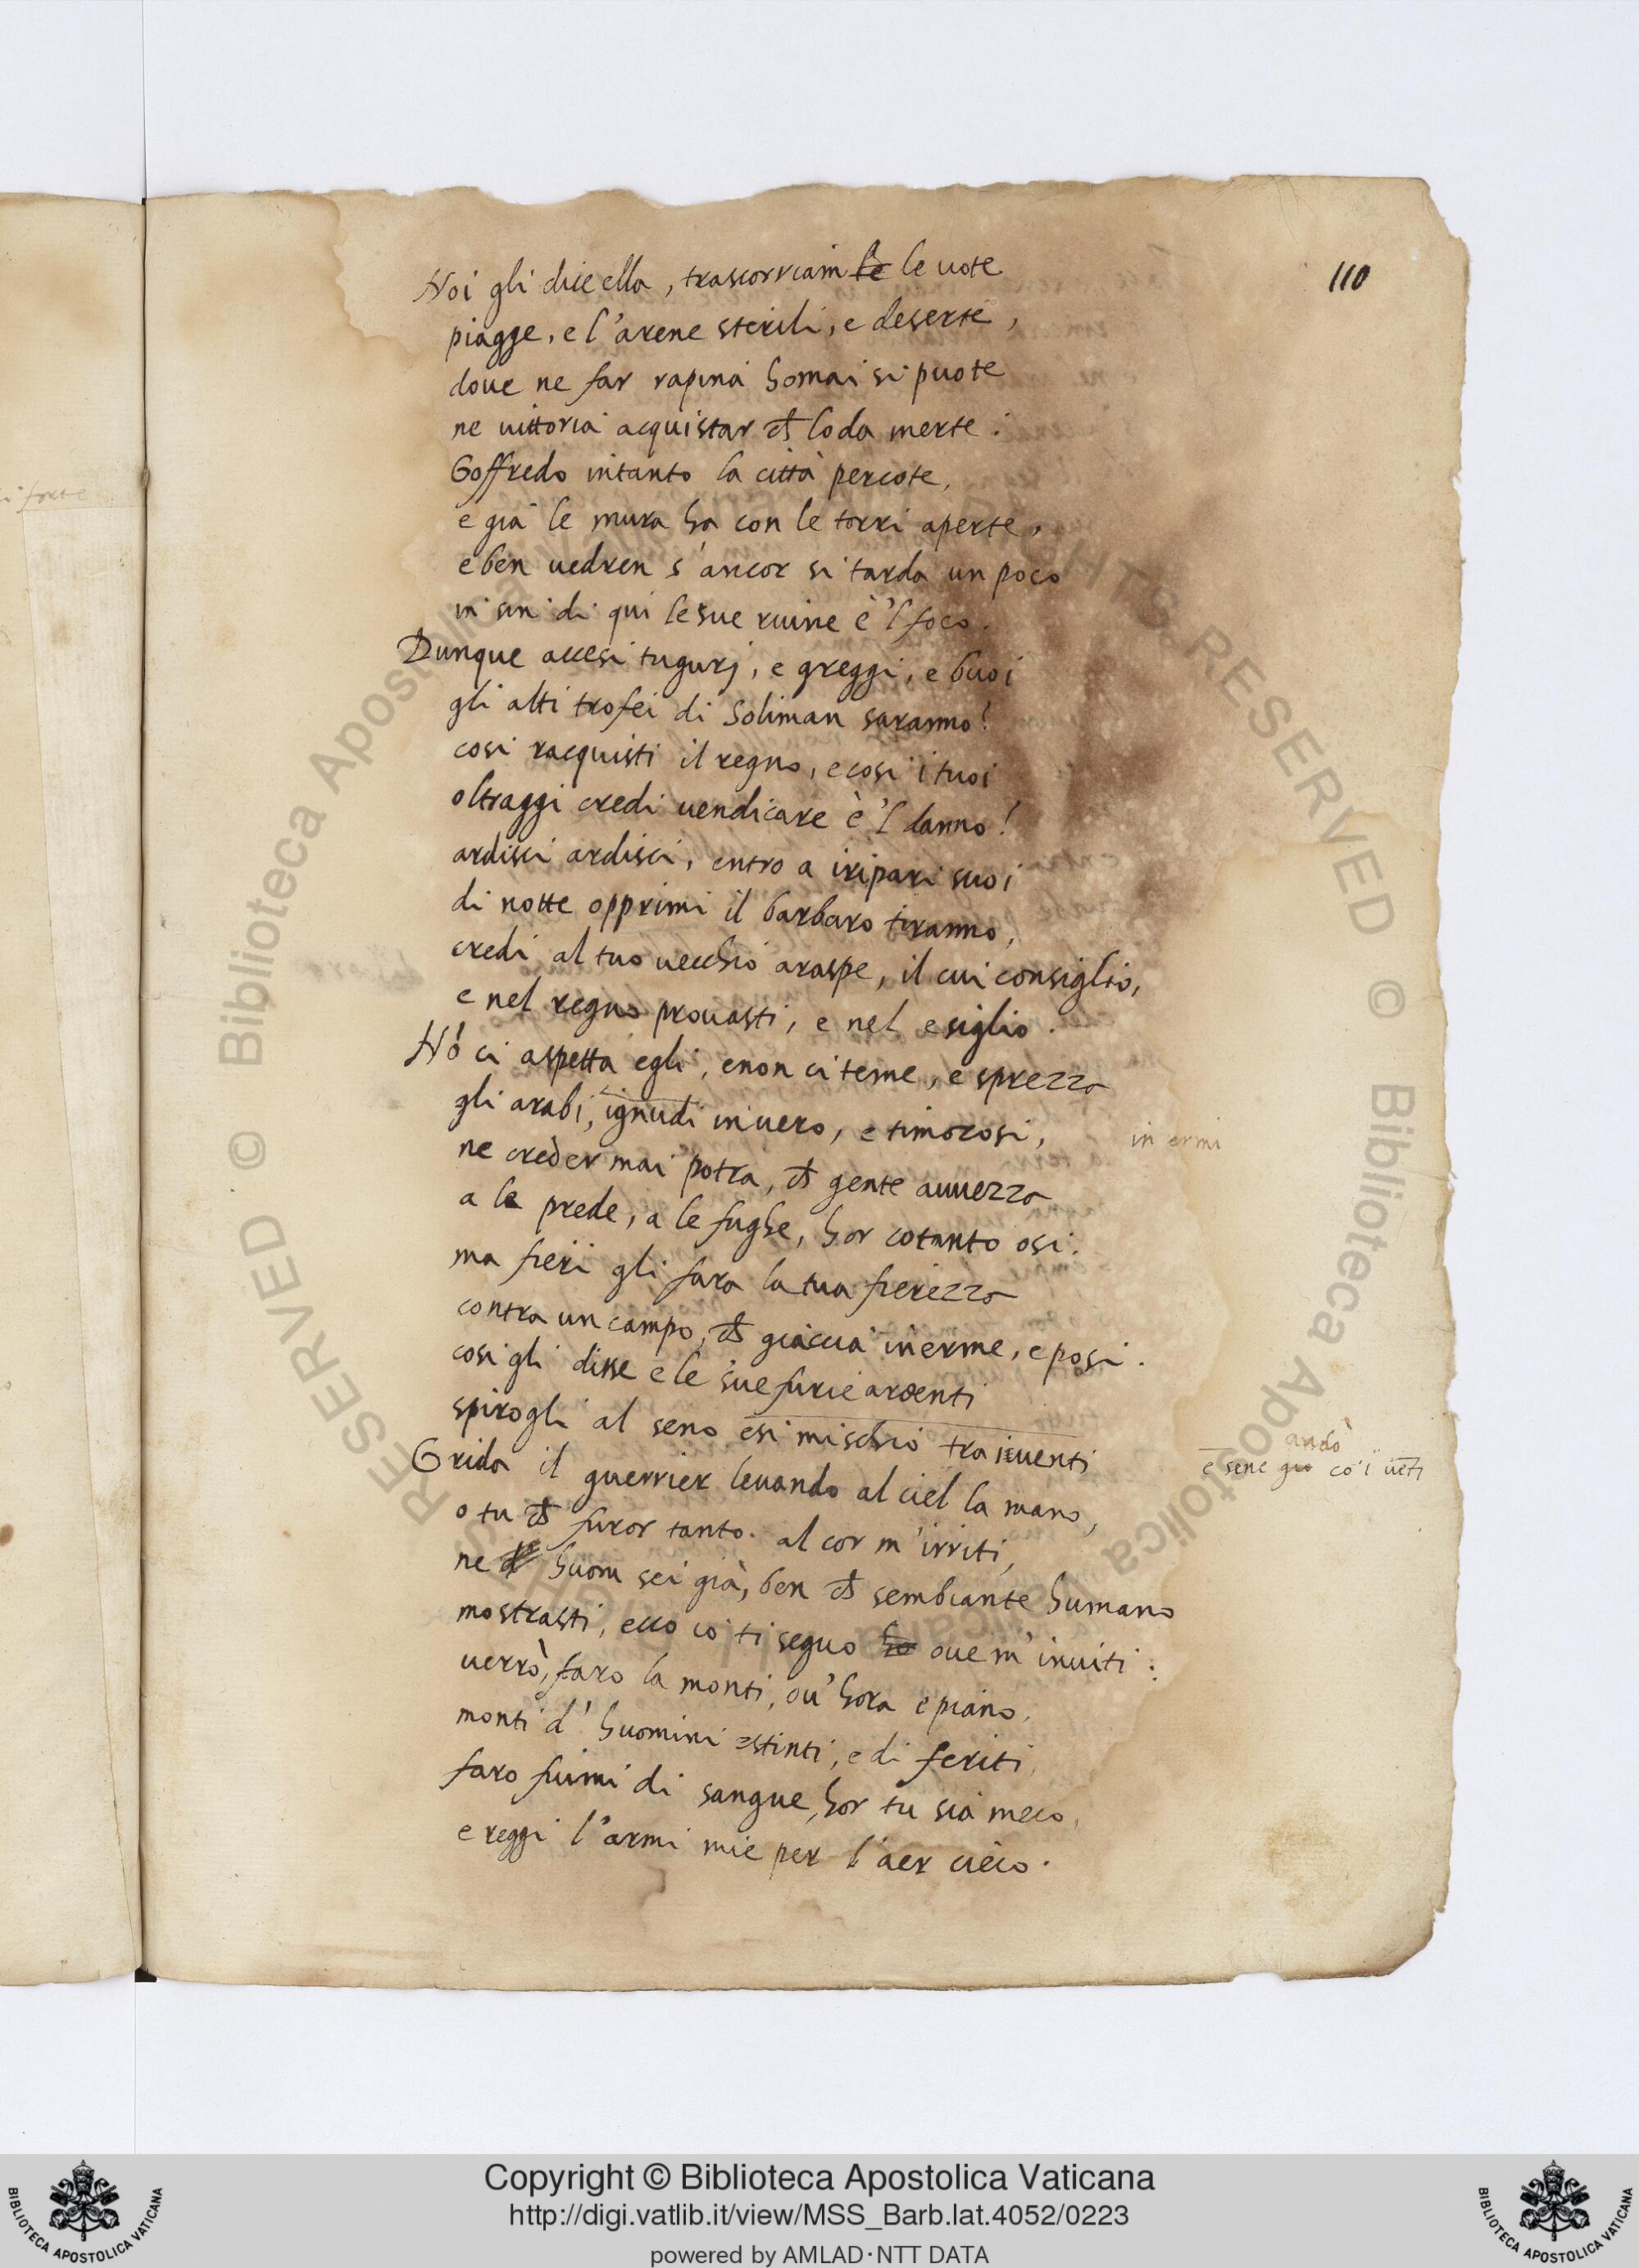 110
Noi gli dice ella, trascorriam le le uote
piagge, e l'arene sterili, e deserte,
doue ne far rapina homai si puote
ne uittoria acquistar ch̄ loda merte:
Goffredo intanto la città percote,
e già le mura ha con le torri aperte,
e ben uedren s'ancor si tarda un poco
in sin di qui le sue ruine è 'l foco.
Dunque accesi tugurj, e greggi, e buoi
gli alti trofei di Soliman saranno?
cosi racquisti il regno, e cosi i tuoi
oltraggi credi uendicare è 'l danno?
ardisci ardisci, entro a i ripari suoi
di notte opprimi il barbaro tiranno,
credi al tuo uecchio araspe, il cui consiglio,
e nel regno prouasti, e nel esiglio.
Nō ci aspetta egli, e non ci teme, e sprezza
gli arabi, ignudi in uero, e timorosi,
in ermi
ne creder mai potra, ch̄ gente auuezza
a le prede, a le fughe, hor cotanto osi.
ma fieri gli fara la tua fierezza
contra un campo, ch̄ giaccia inerme, e posi.
cosi gli disse e le sue furie ardenti
spirogli al seno e si mischiò tra i uenti
andò
e sene gio co' i uēti
Grida il guerrier leuando al ciel la mano,
o tu ch̄ furor tanto al cor m'irriti,
ne huom sei già, ben ch̄ sembiante humano
mostrasti, ecco io ti seguo oue m'inuiti:
uerrò, faro la monti, ou' hora e piano,
monti d'huomini estinti, e di feriti,
faro fiumi di sangue, hor tu sia meco,
e reggi l'armi mie per l'aer cieco.
i forte
Copyright © Biblioteca Apostolica Vaticana
http://digi.vatlib.it/view/MSS_Barb.lat.4052/0223
powered by AMLAD·NTT DATA
BIBLIOTECA APOSTOLICA VATICANA
BIBLIOTECA APOSTOLICA VATICANA